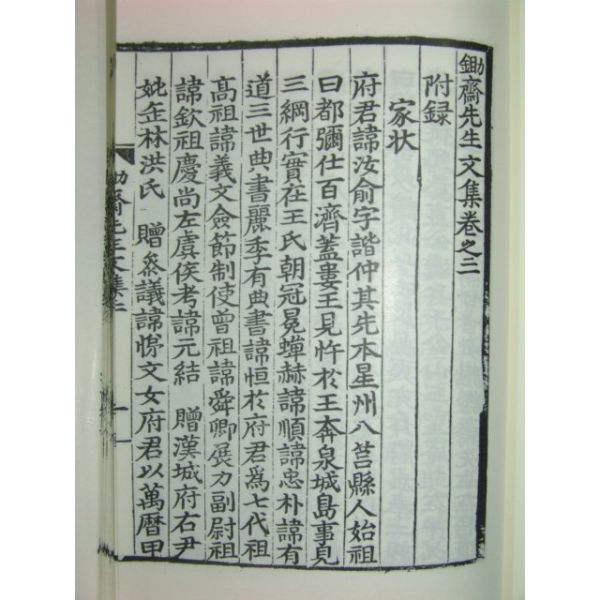 鋤齋先生文集卷之二
附録
家状
府君諱汝俞字諧仲其先本星州八莒縣人始祖
曰都彌仕百濟蓋婁王見忤於王奔泉城島事見
三綱行實在王氏朝冠冕蟬赫諱順諱忠朴諱有
道三世典書麗季有典書諱恒於府君爲七代祖
高祖諱義文僉節制使曾祖諱舜卿展力副尉祖
諱欽祖慶尚左虞侯考諱元結 贈漢城府右尹
妣缶林洪氏 贈叅議諱 文女府君以萬曆甲
鋤齋先生文集二 一